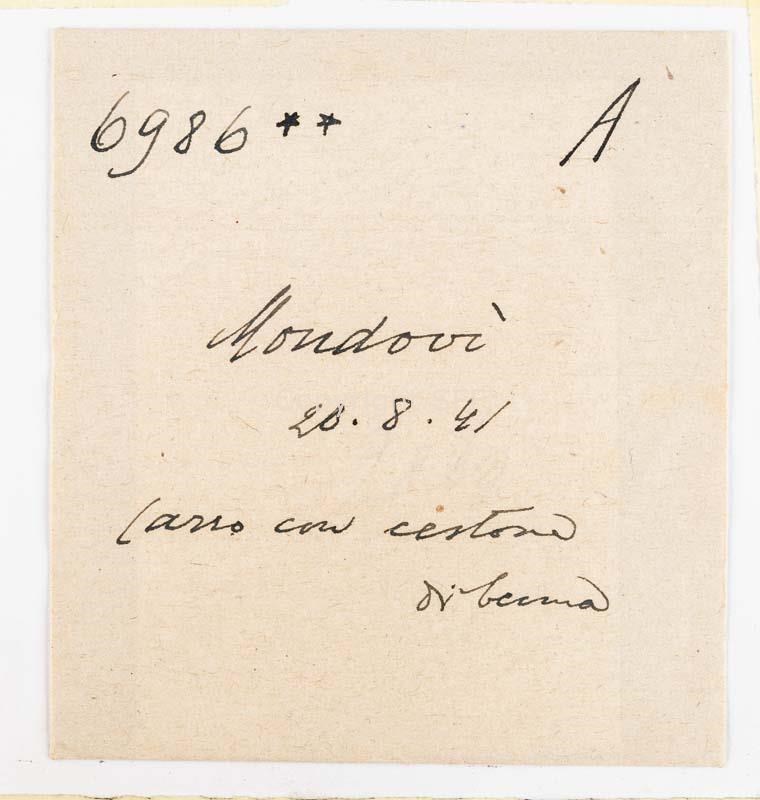 6986** A
Mondovì
20.8.41
Carro con cestone
di